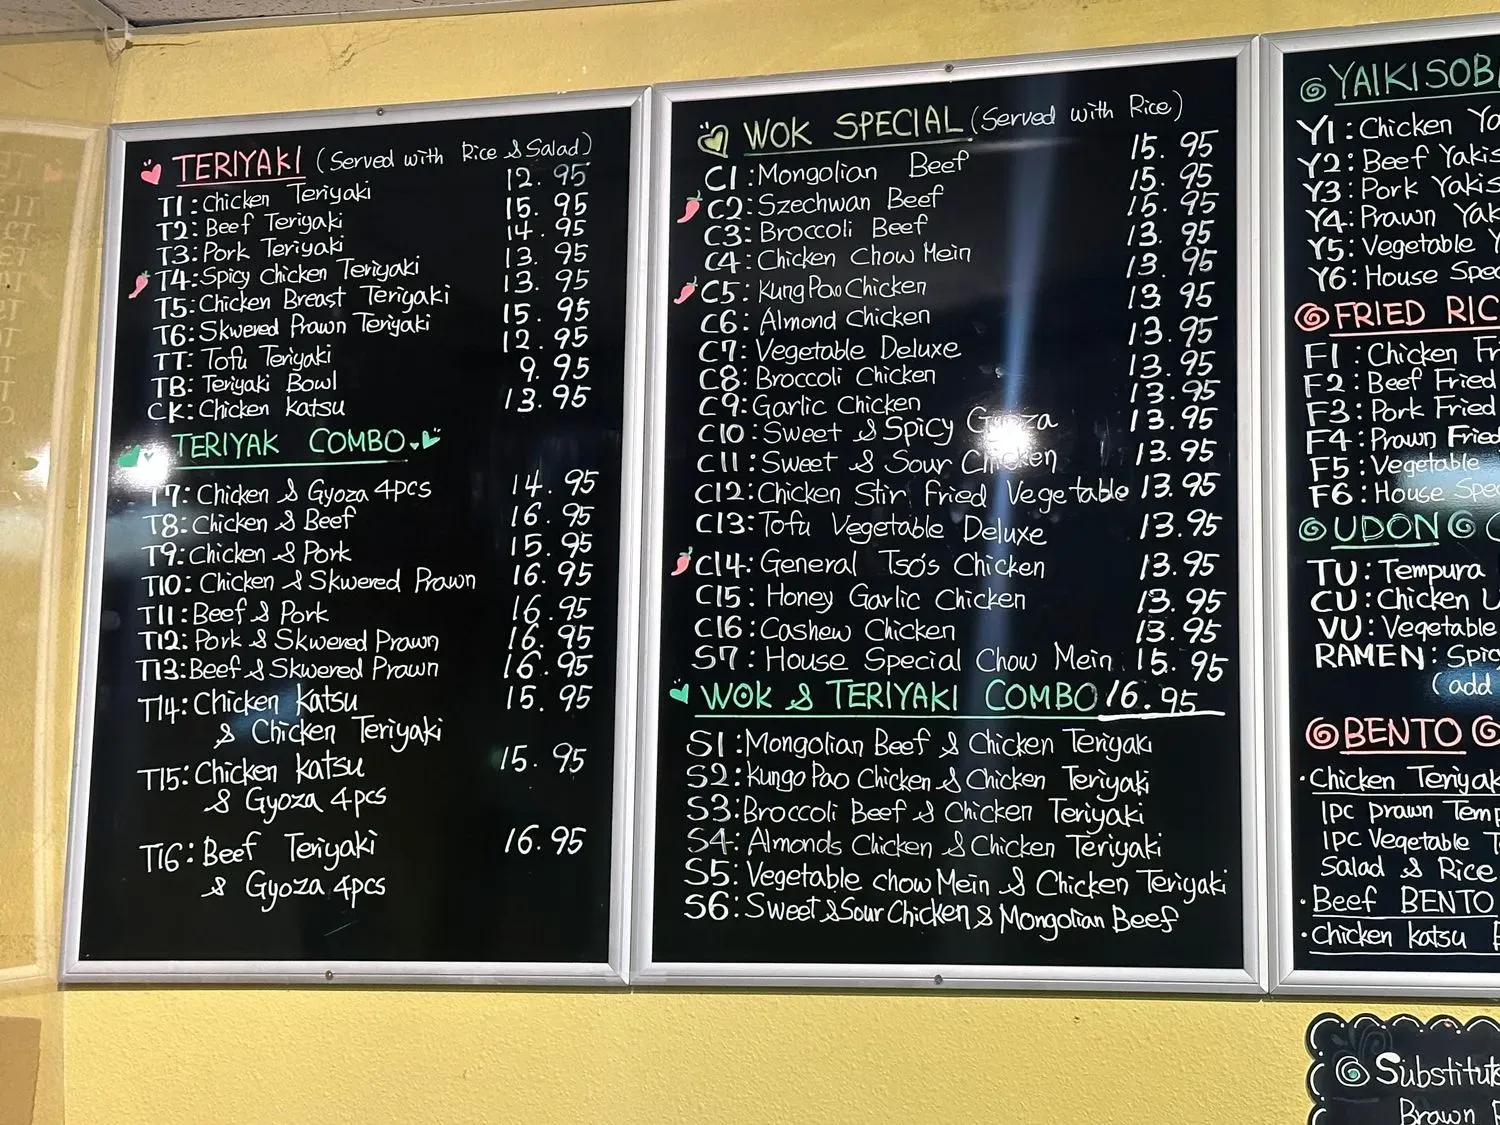 TERIYAKI (Served with Rice & Salad)
T1: Chicken Teriyaki 12.95
T2: Beef Teriyaki 15.95
T3: Pork Teriyaki 14.95
T4: Spicy Chicken Teriyaki 13.95
T5: Chicken Breast Teriyaki 13.95
T6: Skwered Prawn Teriyaki 15.95
TT: Tofu Teriyaki 12.95
TB: Teriyaki Bowl 9.95
CK: Chicken katsu 13.95
TERIYAK COMBO
T7: Chicken & Gyoza 4pcs 14.95
T8: Chicken & Beef 16.95
T9: Chicken & Pork 15.95
T10: Chicken & Skwered Prawn 16.95
T11: Beef & Pork 16.95
T12: Pork & Skwered Prawn 16.95
T13: Beef & Skwered Prawn 16.95
T14: Chicken katsu 15.95
& Chicken Teriyaki
T15: Chicken katsu 15.95
& Gyoza 4pcs
T16: Beef Teriyaki 16.95
& Gyoza 4pcs
WOK SPECIAL (Served with Rice)
C1: Mongolian Beef 15.95
C2: Szechwan Beef 15.95
C3: Broccoli Beef 15.95
C4: Chicken Chow Mein 13.95
C5: Kung Pao Chicken 13.95
C6: Almond Chicken 13.95
C7: Vegetable Deluxe 13.95
C8: Broccoli Chicken 13.95
C9: Garlic Chicken 13.95
C10: Sweet & Spicy Gyoza 13.95
C11: Sweet & Sour Chicken 13.95
C12: Chicken Stir Fried Vegetable 13.95
C13: Tofu Vegetable Deluxe 13.95
C14: General Tso's Chicken 13.95
C15: Honey Garlic Chicken 13.95
C16: Cashew Chicken 13.95
S7: House Special Chow Mein 15.95
WOK & TERIYAKI COMBO 16.95
S1: Mongolian Beef & Chicken Teriyaki
S2: Kungo Pao Chicken & Chicken Teriyaki
S3: Broccoli Beef & Chicken Teriyaki
S4: Almonds Chicken & Chicken Teriyaki
S5: Vegetable chow Mein & Chicken Teriyaki
S6: Sweet & Sour Chicken & Mongolian Beef
YAIKISOB
Y1: Chicken Ya
Y2: Beef Yakis
Y3: Pork Yakis
Y4: Prawn Yak
Y5: Vegetable Y
Y6: House Spec
FRIED RIC
F1: Chicken Fri
F2: Beef Fried
F3: Pork Fried
F4: Prawn Fried
F5: Vegetable
F6: House Spec
UDON
TU: Tempura
CU: Chicken U
VU: Vegetable
RAMEN: Spic
(add
BENTO
·Chicken Teriyak
1pc prawn Temp
1pc Vegetable T
Salad & Rice
·Beef BENTO
·Chicken katsu
Substitut
Brown R